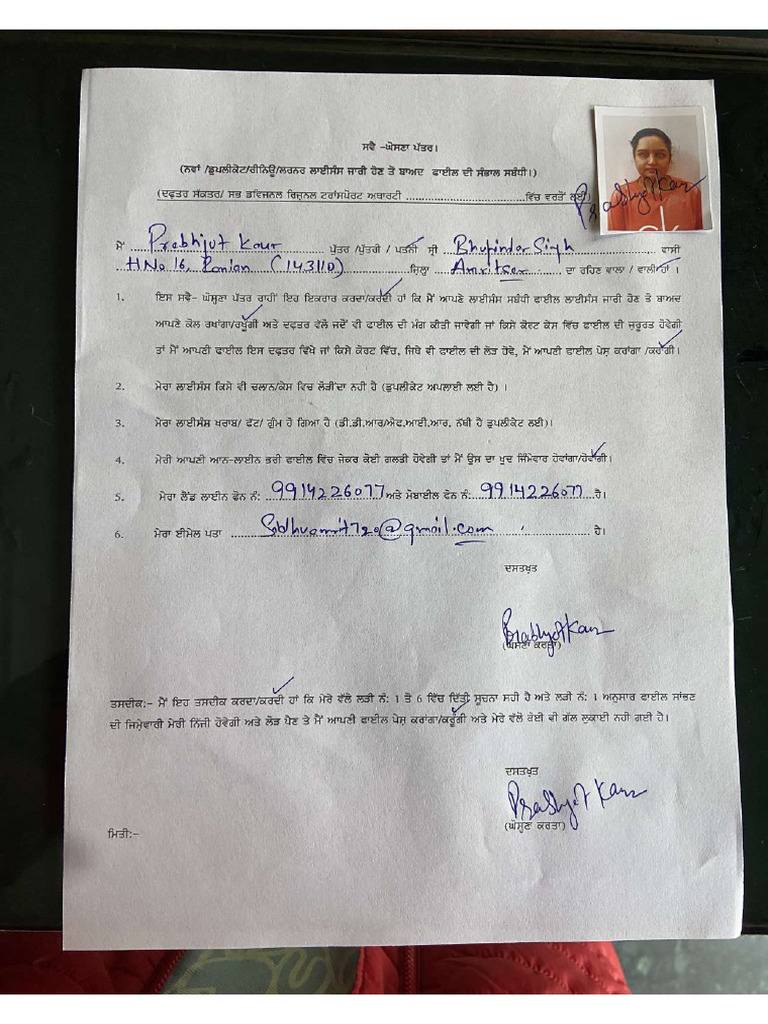 ਸਵੈ -ਘੋਸਣਾ ਪੱਤਰ।
(ਨਵਾਂ /ਡੁਪਲੀਕੇਟ/ਰੀਨਿਊ/ਲਰਨਰ ਲਾਈਸੰਸ ਜਾਰੀ ਹੋਣ ਤੋ ਬਾਅਦ ਫਾਈਲ ਦੀ ਸੰਭਾਲ ਸਬੰਧੀ।)
(ਦਫਤਰ ਸੱਕਤਰ/ ਸਭ ਡਵਿਜਨਲ ਰਿਜੂਨਲ ਟਰਾਂਸਪੋਰਟ ਅਥਾਰਟੀ ..............................ਵਿੱਚ ਵਰਤੋਂ ਲਈ)
Prabhjot Kaur
ਮੈਂ Prabhjot Kaur ਪੁੱਤਰ /ਪੁੱਤਰੀ / ਪਤਨੀ ਸ੍ਰੀ Bhupinder Singh ਵਾਸੀ
H No 16, Ranian (143110) ਜ਼ਿਲ੍ਹਾ Amritser ਦਾ ਰਹਿਣ ਵਾਲਾ / ਵਾਲੀ ਹਾਂ ।
1. ਇਸ ਸਵੈ- ਘੋਸ਼ਣਾ ਪੱਤਰ ਰਾਹੀਂ ਇਹ ਇਕਰਾਰ ਕਰਦਾ/ਕਰਦੀ ਹਾਂ ਕਿ ਮੈਂ ਆਪਣੇ ਲਾਈਸੰਸ ਸਬੰਧੀ ਫਾਈਲ ਲਾਈਸੰਸ ਜਾਰੀ ਹੋਣ ਤੋ ਬਾਅਦ
ਆਪਣੇ ਕੋਲ ਰਖਾਂਗਾ/ਰਖੂੰਗੀ ਅਤੇ ਦਫਤਰ ਵੱਲੋ ਜਦੋਂ ਵੀ ਫਾਈਲ ਦੀ ਮੰਗ ਕੀਤੀ ਜਾਵੇਗੀ ਜਾਂ ਕਿਸੇ ਕੋਰਟ ਕੇਸ ਵਿੱਚ ਫਾਈਲ ਦੀ ਜ਼ਰੂਰਤ ਹੋਵੇਗੀ
ਤਾਂ ਮੈਂ ਆਪਣੀ ਫਾਈਲ ਇਸ ਦਫਤਰ ਵਿੱਖੇ ਜਾਂ ਕਿਸੇ ਕੋਰਟ ਵਿੱਚ, ਜਿਥੇ ਵੀ ਫਾਈਲ ਦੀ ਲੋੜ ਹੋਵੇ, ਮੈਂ ਆਪਣੀ ਫਾਈਲ ਪੇਸ਼ ਕਰਾਂਗਾ /ਕਰਾਂਗੀ।
2. ਮੇਰਾ ਲਾਈਸੰਸ ਕਿਸੇ ਵੀ ਚਲਾਨ/ਕੇਸ ਵਿਚ ਲੋੜੀਂਦਾ ਨਹੀ ਹੈ (ਡੁਪਲੀਕੇਟ ਅਪਲਾਈ ਲਈ ਹੈ) ।
3. ਮੇਰਾ ਲਾਈਸੰਸ ਖਰਾਬ/ ਫੱਟ/ ਗੁੰਮ ਹੋ ਗਿਆ ਹੈ (ਡੀ.ਡੀ.ਆਰ/ਐਫ.ਆਈ.ਆਰ. ਨੱਥੀ ਹੈ ਡੁਪਲੀਕੇਟ ਲਈ)।
4. ਮੇਰੀ ਆਪਣੀ ਆਨ-ਲਾਈਨ ਭਰੀ ਫਾਈਲ ਵਿੱਚ ਜੇਕਰ ਕੋਈ ਗਲਤੀ ਹੋਵੇਗੀ ਤਾਂ ਮੈਂ ਉਸ ਦਾ ਖੁਦ ਜਿੰਮੇਵਾਰ ਹੋਵਾਂਗਾ/ਹੋਵਾਂਗੀ।
5. ਮੇਰਾ ਲੈਂਡ ਲਾਈਨ ਫੋਨ ਨੰ: 9914226077 ਅਤੇ ਮੋਬਾਈਲ ਫੋਨ ਨੰ: 9914226077 ਹੈ।
6. ਮੇਰਾ ਈਮੇਲ ਪਤਾ Sidhuamit720@gmail.com ਹੈ।
ਦਸਤਖ਼ਤ
Prabhjot Kaur
(ਘੋਸਣਾ ਕਰਤਾ)
ਤਸਦੀਕ:- ਮੈਂ ਇਹ ਤਸਦੀਕ ਕਰਦਾ/ਕਰਦੀ ਹਾਂ ਕਿ ਮੇਰੇ ਵੱਲੋ ਲੜੀ ਨੰ: 1 ਤੋ 6 ਵਿੱਚ ਦਿੱਤੀ ਸੂਚਨਾ ਸਹੀ ਹੈ ਅਤੇ ਲੜੀ ਨੰ: 1 ਅਨੁਸਾਰ ਫਾਈਲ ਸਾਂਭਣ
ਦੀ ਜਿਮੇਵਾਰੀ ਮੇਰੀ ਨਿੱਜੀ ਹੋਵੇਗੀ ਅਤੇ ਲੋੜ ਪੈਣ ਤੇ ਮੈਂ ਆਪਣੀ ਫਾਈਲ ਪੇਸ਼ ਕਰਾਂਗਾ/ਕਰੂੰਗੀ ਅਤੇ ਮੇਰੇ ਵੱਲੋ ਕੋਈ ਵੀ ਗੱਲ ਲੁਕਾਈ ਨਹੀ ਗਈ ਹੈ।
ਦਸਤਖ਼ਤ
Prabhjot Kaur
(ਘੋਸ਼ਣ ਕਰਤਾ)
ਮਿਤੀ:-